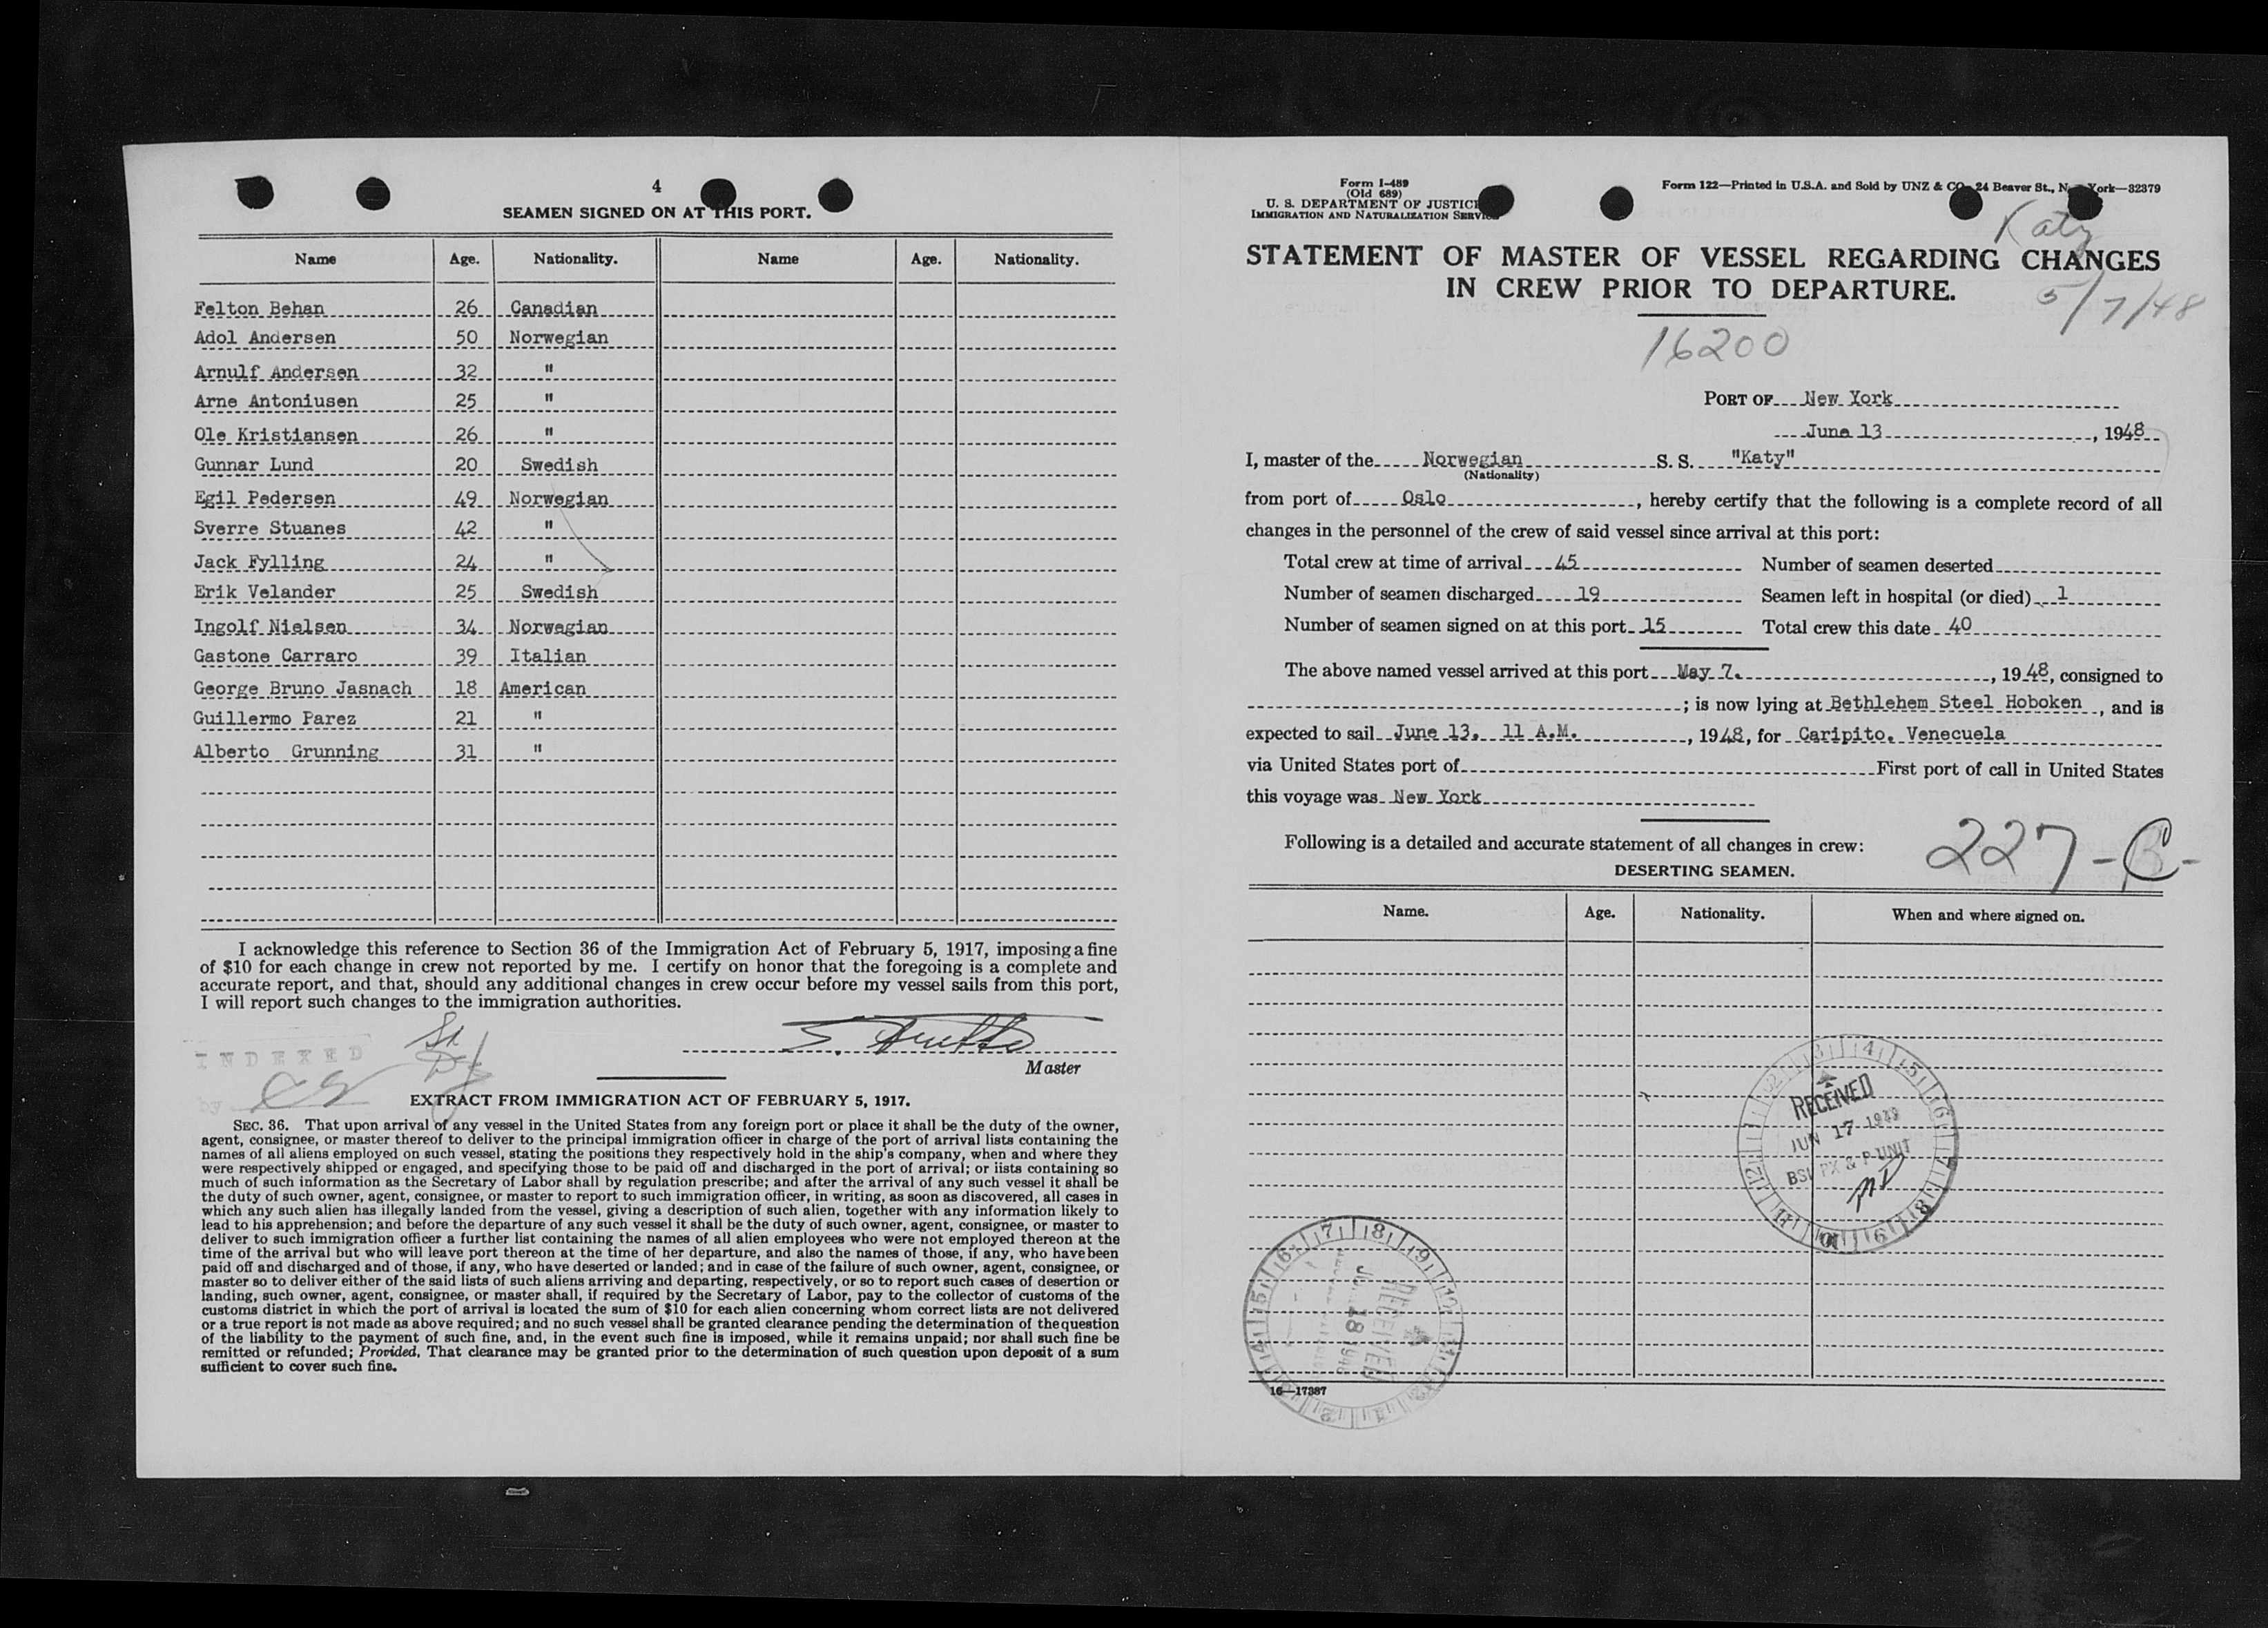 4
SEAMEN SIGNED ON AT THIS PORT.
Name Age. Nationality. Name Age. Nationality.
Felton Behan 26 Canadian
Adol Andersen 50 Norwegian
Arnulf Andersen 32 "
Arne Antoniusen 25 "
Ole Kristiansen 26 "
Gunnar Lund 20 Swedish
Egil Pedersen 49 Norwegian
Sverre Stuanes 42 "
Jack Fylling 24 "
Erik Velander 25 Swedish
Ingolf Nielsen 34 Norwegian
Gastone Carraro 39 Italian
George Bruno Jasnach 18 American
Guillermo Parez 21 "
Alberto Grunning 31 "
I acknowledge this reference to Section 36 of the Immigration Act of February 5, 1917, imposing a fine
of $10 for each change in crew not reported by me. I certify on honor that the foregoing is a complete and
accurate report, and that, should any additional changes in crew occur before my vessel sails from this port,
I will report such changes to the immigration authorities.
INDEXED
by
Master
EXTRACT FROM IMMIGRATION ACT OF FEBRUARY 5, 1917.
SEC. 36. That upon arrival of any vessel in the United States from any foreign port or place it shall be the duty of the owner,
agent, consignee, or master thereof to deliver to the principal immigration officer in charge of the port of arrival lists containing the
names of all aliens employed on such vessel, stating the positions they respectively hold in the ship's company, when and where they
were respectively shipped or engaged, and specifying those to be paid off and discharged in the port of arrival; or lists containing so
much of such information as the Secretary of Labor shall by regulation prescribe; and after the arrival of any such vessel it shall be
the duty of such owner, agent, consignee, or master to report to such immigration officer, in writing, as soon as discovered, all cases in
which any such alien has illegally landed from the vessel, giving a description of such alien, together with any information likely to
lead to his apprehension; and before the departure of any such vessel it shall be the duty of such owner, agent, consignee, or master to
deliver to such immigration officer a further list containing the names of all alien employees who were not employed thereon at the
time of the arrival but who will leave port thereon at the time of her departure, and also the names of those, if any, who have been
paid off and discharged and of those, if any, who have deserted or landed; and in case of the failure of such owner, agent, consignee, or
master so to deliver either of the said lists of such aliens arriving and departing, respectively, or so to report such cases of desertion or
landing, such owner, agent, consignee, or master shall, if required by the Secretary of Labor, pay to the collector of customs of the
customs district in which the port of arrival is located the sum of $10 for each alien concerning whom correct lists are not delivered
or a true report is not made as above required; and no such vessel shall be granted clearance pending the determination of the question
of the liability to the payment of such fine, and, in the event such fine is imposed, while it remains unpaid; nor shall such fine be
remitted or refunded; Provided, That clearance may be granted prior to the determination of such question upon deposit of a sum
sufficient to cover such fine.
Form I-489
(Old 689)
U. S. DEPARTMENT OF JUSTICE
IMMIGRATION AND NATURALIZATION SERVICE
Form 122—Printed in U.S.A. and Sold by UNZ & CO., 24 Beaver St., New York—32379
Katy
STATEMENT OF MASTER OF VESSEL REGARDING CHANGES
IN CREW PRIOR TO DEPARTURE.
5/7/48
16200
PORT OF New York
June 13, 1948
I, master of the Norwegian S. S. "Katy"
(Nationality)
from port of Oslo, hereby certify that the following is a complete record of all
changes in the personnel of the crew of said vessel since arrival at this port:
Total crew at time of arrival 45 Number of seamen deserted
Number of seamen discharged 19 Seamen left in hospital (or died) 1
Number of seamen signed on at this port 15 Total crew this date 40
The above named vessel arrived at this port May 7, 1948, consigned to
; is now lying at Bethlehem Steel Hoboken, and is
expected to sail June 13, 11 A.M., 1948, for Caripito, Venecuela
via United States port of First port of call in United States
this voyage was New York
Following is a detailed and accurate statement of all changes in crew:
227-C-
DESERTING SEAMEN.
Name. Age. Nationality. When and where signed on.
RECEIVED
JUN 17 1948
BSI PX & P UNIT
RECEIVED
18 1948
16—17387